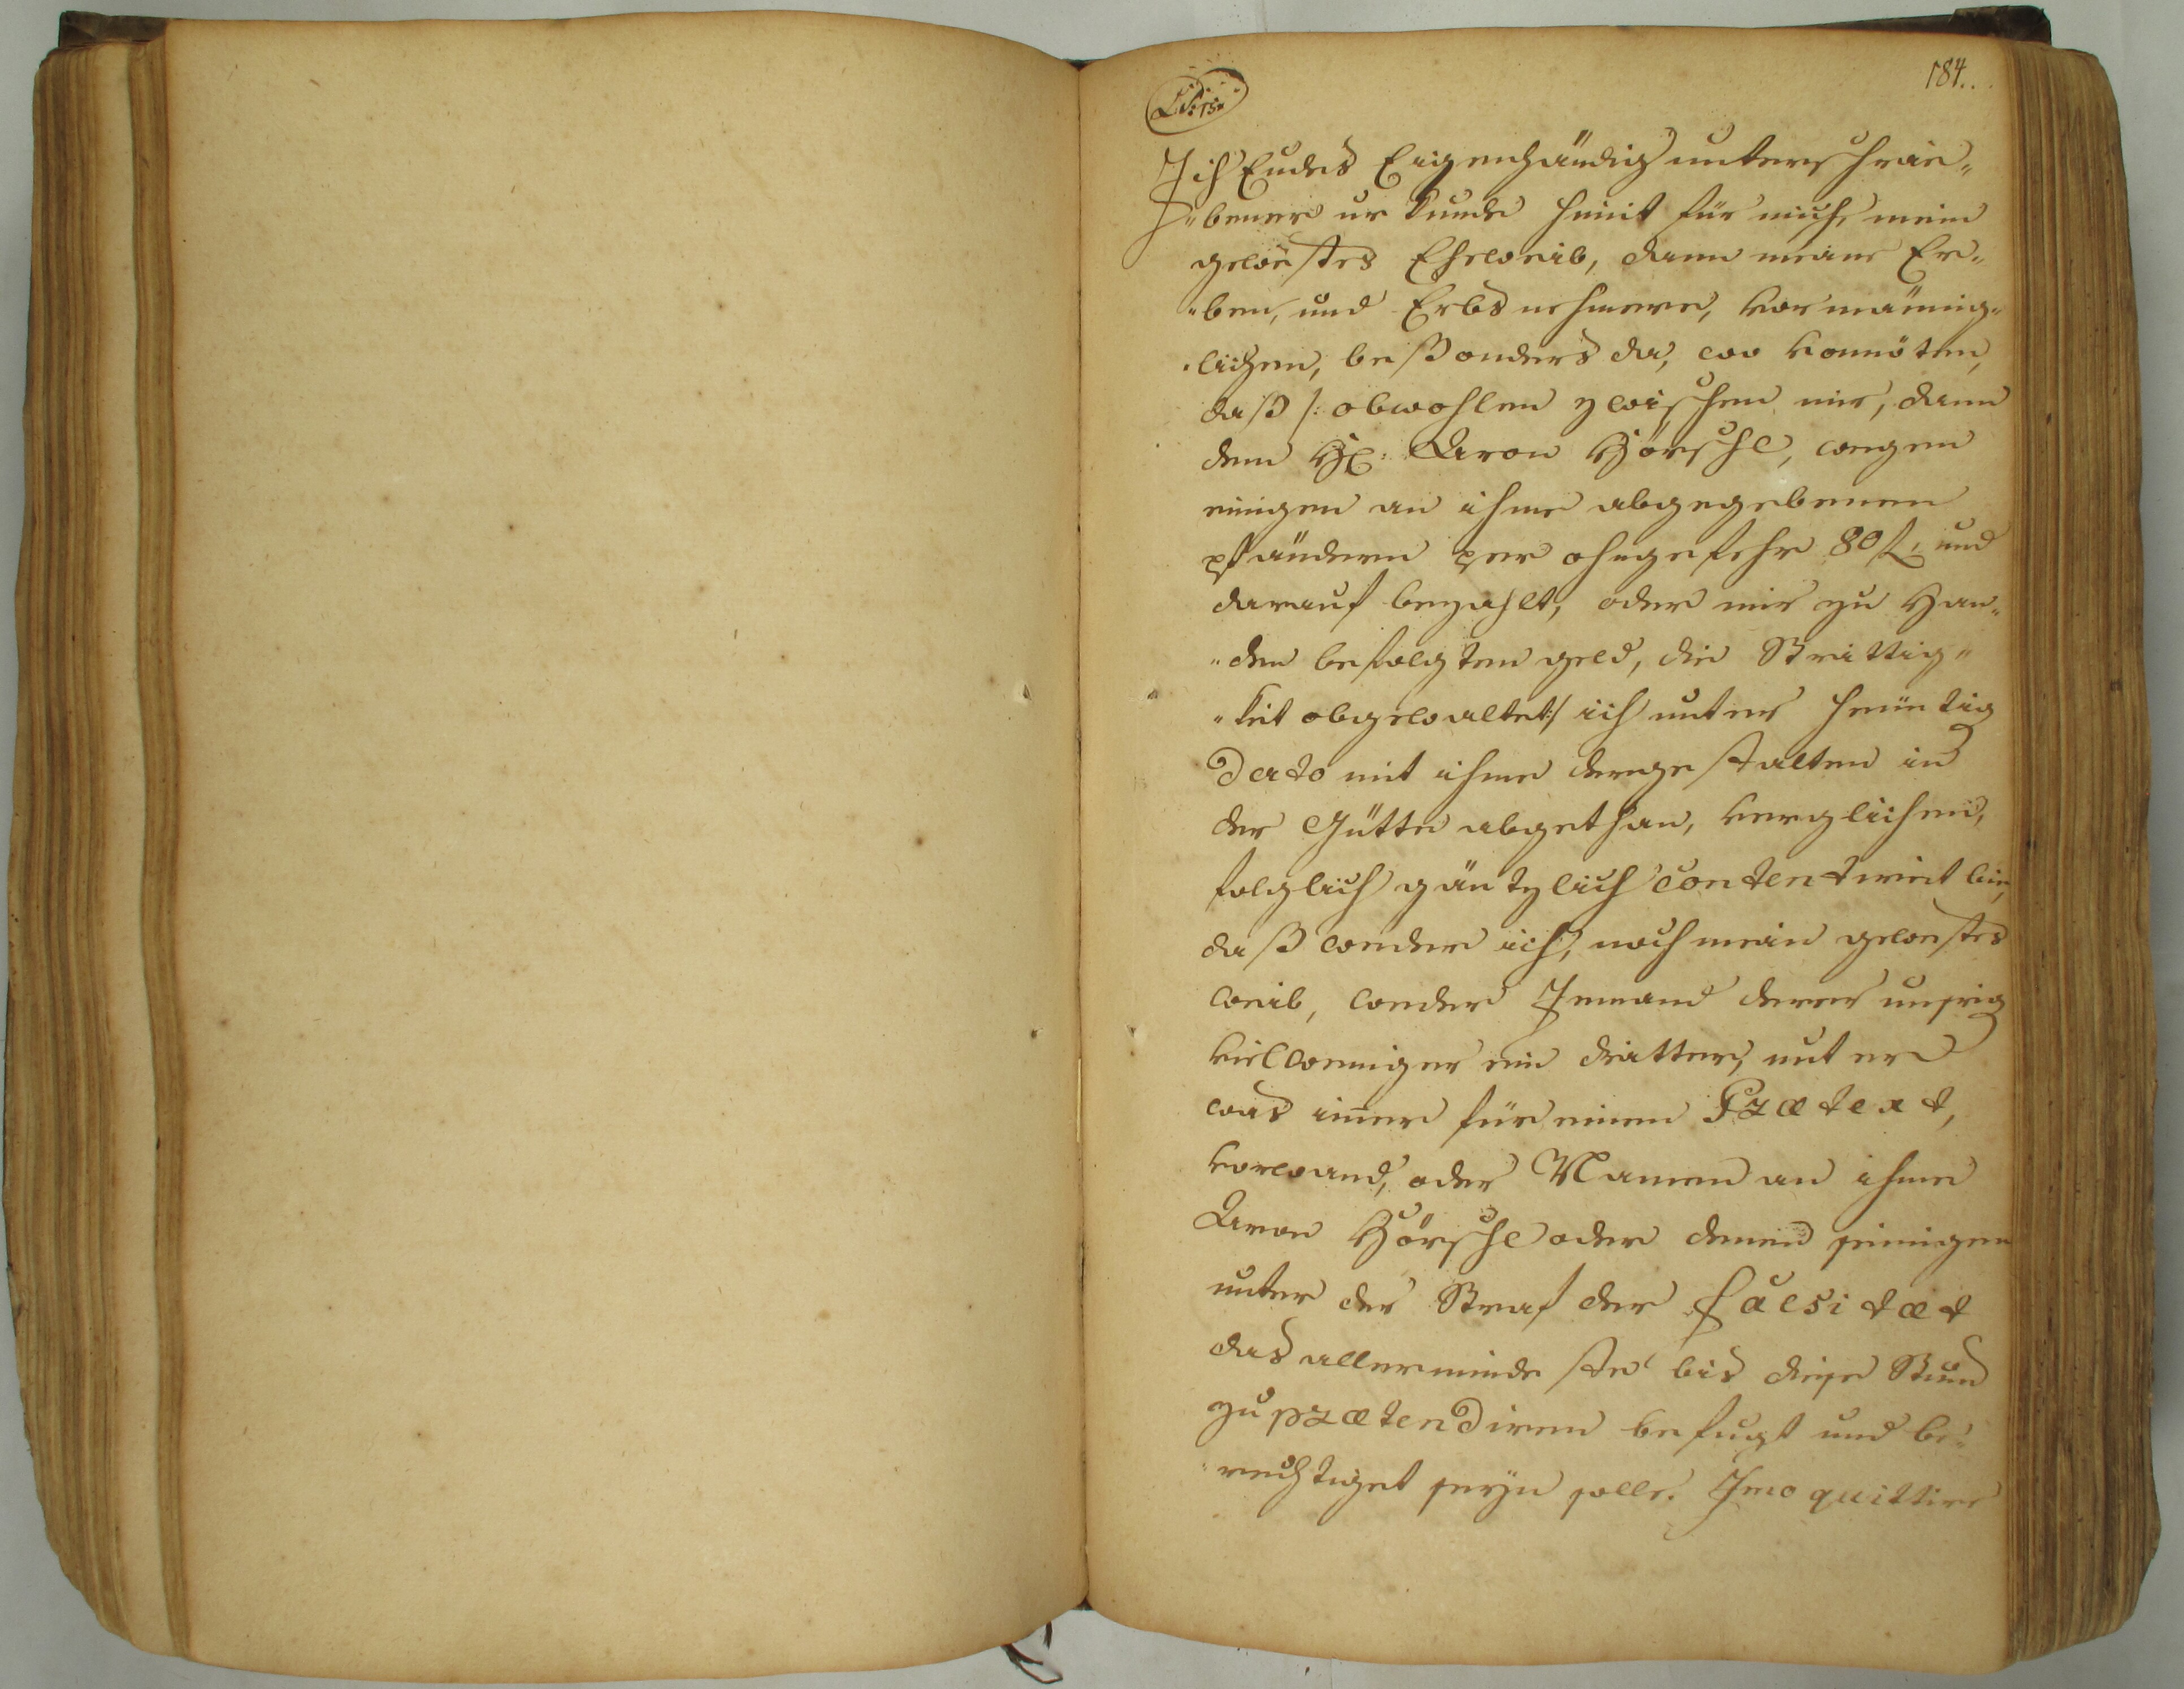 184.
Ich Eudes Eigenhändig unterschrie„
„bener urkunde himit für mich, mein
gewestes Eheweib, dann meine Er„
„ben, und Erbsnehmere, vor männig„
„lichen, beßonders da, wo vonnöten,
daß /: obwohlen zwischen mir, dann
dem H: Aaron Hörschl, wegen
einigen an ihme abgegebenen
pfändern per ohngefehr 80 f, und
darauf bezahlt, oder mir zu Han„
„den befolgten geld, die Strittig„
„keit obgewaltet :/ ich unter heüntig
Dato mit ihme dergestalten in
der Gütte abgethan, verglichen,
folglich gäntzlich contentirirt bin,
daß weder ich, noch mein gewestes
weib, weder Jemand derer unsrig
vielweniger ein dritter, unter
was imer für einem Prætext,
vorwand, oder Namen an ihme
Aaron Hörschl oder denen seinigen
unter der Straf der Falsitæt
das allermindeste bis diese Stund
zu prætendiren befugt und be„
„rechtiget seyn solle. Imo quittire